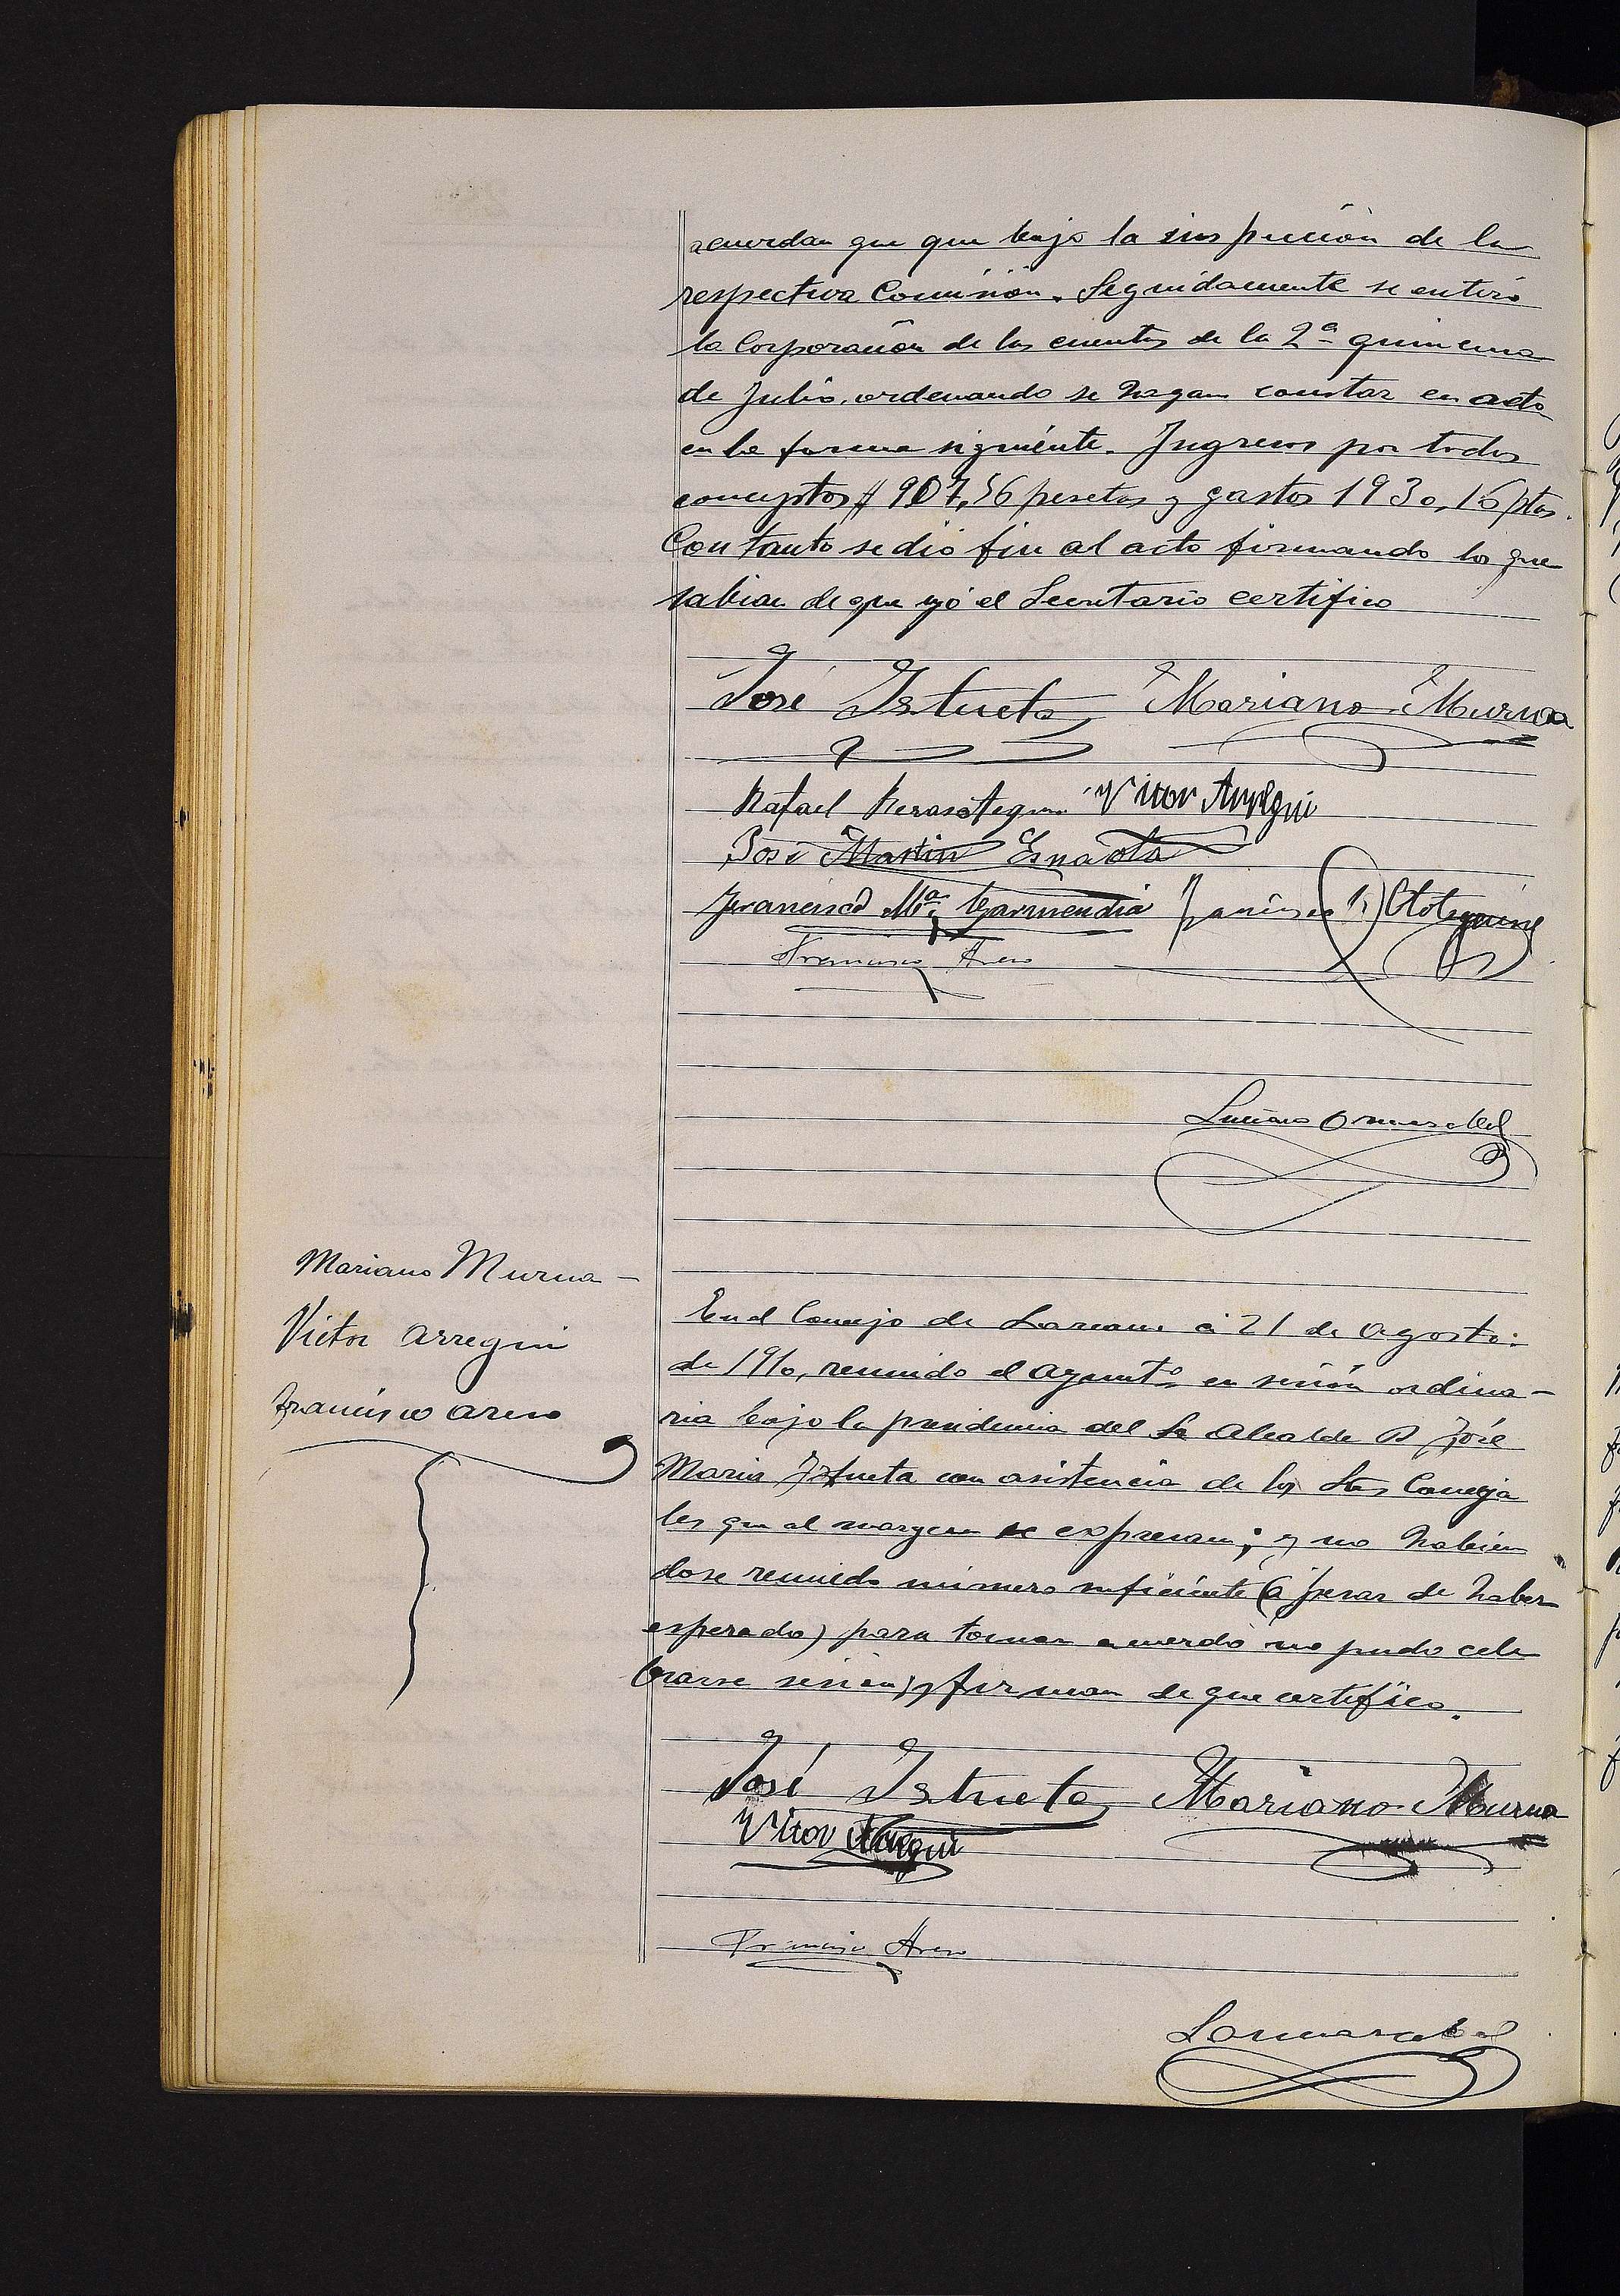 acuerdan que que bajo la inspección de la
respectiva Comisión. Seguidamente se enteró
la Corporación de las cuentas de la 2ª quincena
de Julio, ordenando se hagan constar en acta
en la forma siguiente. Ingresos por todos
conceptos 907,56 pesetas y gastos 1930,16 ptas.
Con tanto se dió fin al acto firmando los que
sabian de que yó el Secretario certifico
José Istueta Mariano Murua
Rafael Berasategui Vitor Arregui
José Martin Esnaola
Francisco Mª Garmendia Francisco
Francisco Areso
Luciano Ormazabal
Mariano Murua -
Victor Arregui
Francisco Areso
En el Concejo de Lazcano á 21 de Agosto
de 1910, reunido el Ayuntº en sesión ordina-
ria bajo la presidencia del Sr Alcalde D José
Maria Iztueta con asistencia de los Sres Conceja
les que al margen se expresan; y no habien
dose reunido número suficiente (á pesar de haber
esperado) para tomar acuerdo no pudo cele
brarse sesion, y firman de que certifico.
José Istueta Mariano Murua
Vitor Arregui
Francisco Areso
L Ormazabal